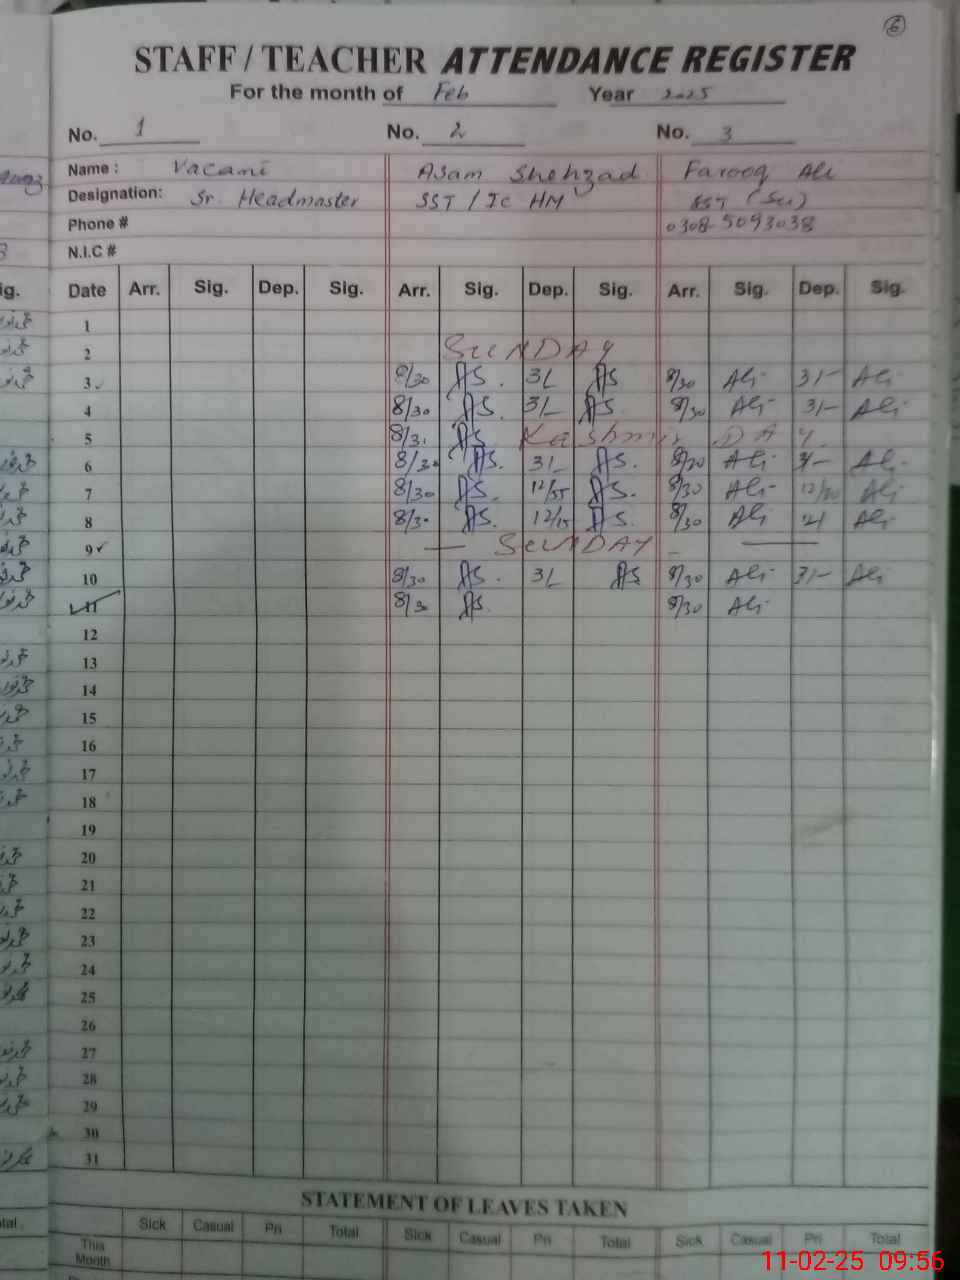 6
STAFF / TEACHER ATTENDANCE REGISTER
For the month of Feb Year 2025
No. 1 No. 2 No. 3
Name : Vacant Asam Shehzad Farooq Ali
Designation: Sr. Headmaster SST / Ic HM SST (Sci)
Phone # 0308-5093038
N.I.C #
Date Arr. Sig. Dep. Sig. Arr. Sig. Dep. Sig. Arr. Sig. Dep. Sig.
1
2 SUNDAY
3 8/30 AS. 3/- AS 8/30 Ali 3/- Ali
4 8/30 AS. 3/- AS. 8/30 Ali 3/- Ali
5 AS Kashmir DAY
6 AS. 3/- AS. Ali Ali
7 8/30 AS. 12/55 AS. 8/30 Ali Ali
8 8/30 AS. 12/15 AS. 8/30 Ali Ali
9 SUNDAY
10 8/30 AS. 3/- AS 8/30 Ali 3/- Ali
11 8/30 AS. 8/30 Ali
12
13
14
15
16
17
18
19
20
21
22
23
24
25
26
27
28
29
30
31
STATEMENT OF LEAVES TAKEN
Sick Casual Pri Total Sick Casual Pri Total Sick Casual Pri Total
This
Month
11-02-25 09:56